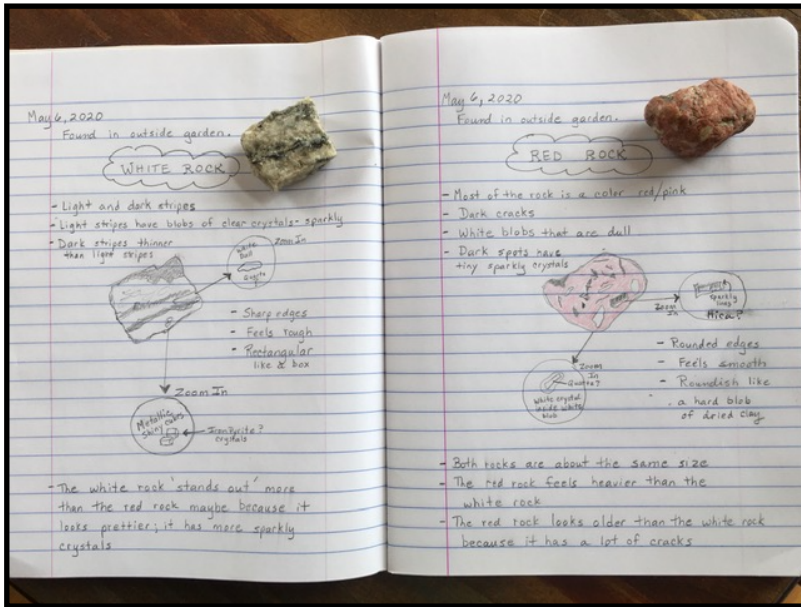 May 6, 2020
Found in outside garden.
WHITE ROCK
- Light and dark stripes
- Light stripes have blobs of clear crystals - sparkly
- Dark stripes thinner
than light stripes
Zoom In
White
Ball
- Sharp edges
- Feels rough
- Rectangular
like a box
Zoom In
Metallic
Shiny cubes
Iron Pyrite?
crystals
- The white rock 'stands out' more
than the red rock maybe because it
looks prettier; it has more sparkly
crystals
May 6, 2020
Found in outside garden.
RED ROCK
- Most of the rock is a color red/pink
- Dark cracks
- White blobs that are dull
- Dark spots have
tiny sparkly crystals
Zoom
In
Sparkly
lines
Mica?
Zoom
In
Quartz?
White crystal
inside white
blob
- Rounded edges
- Feels smooth
- Roundish like
a hard blob
of dried clay
- Both rocks are about the same size
- The red rock feels heavier than the
white rock
- The red rock looks older than the white rock
because it has a lot of cracks